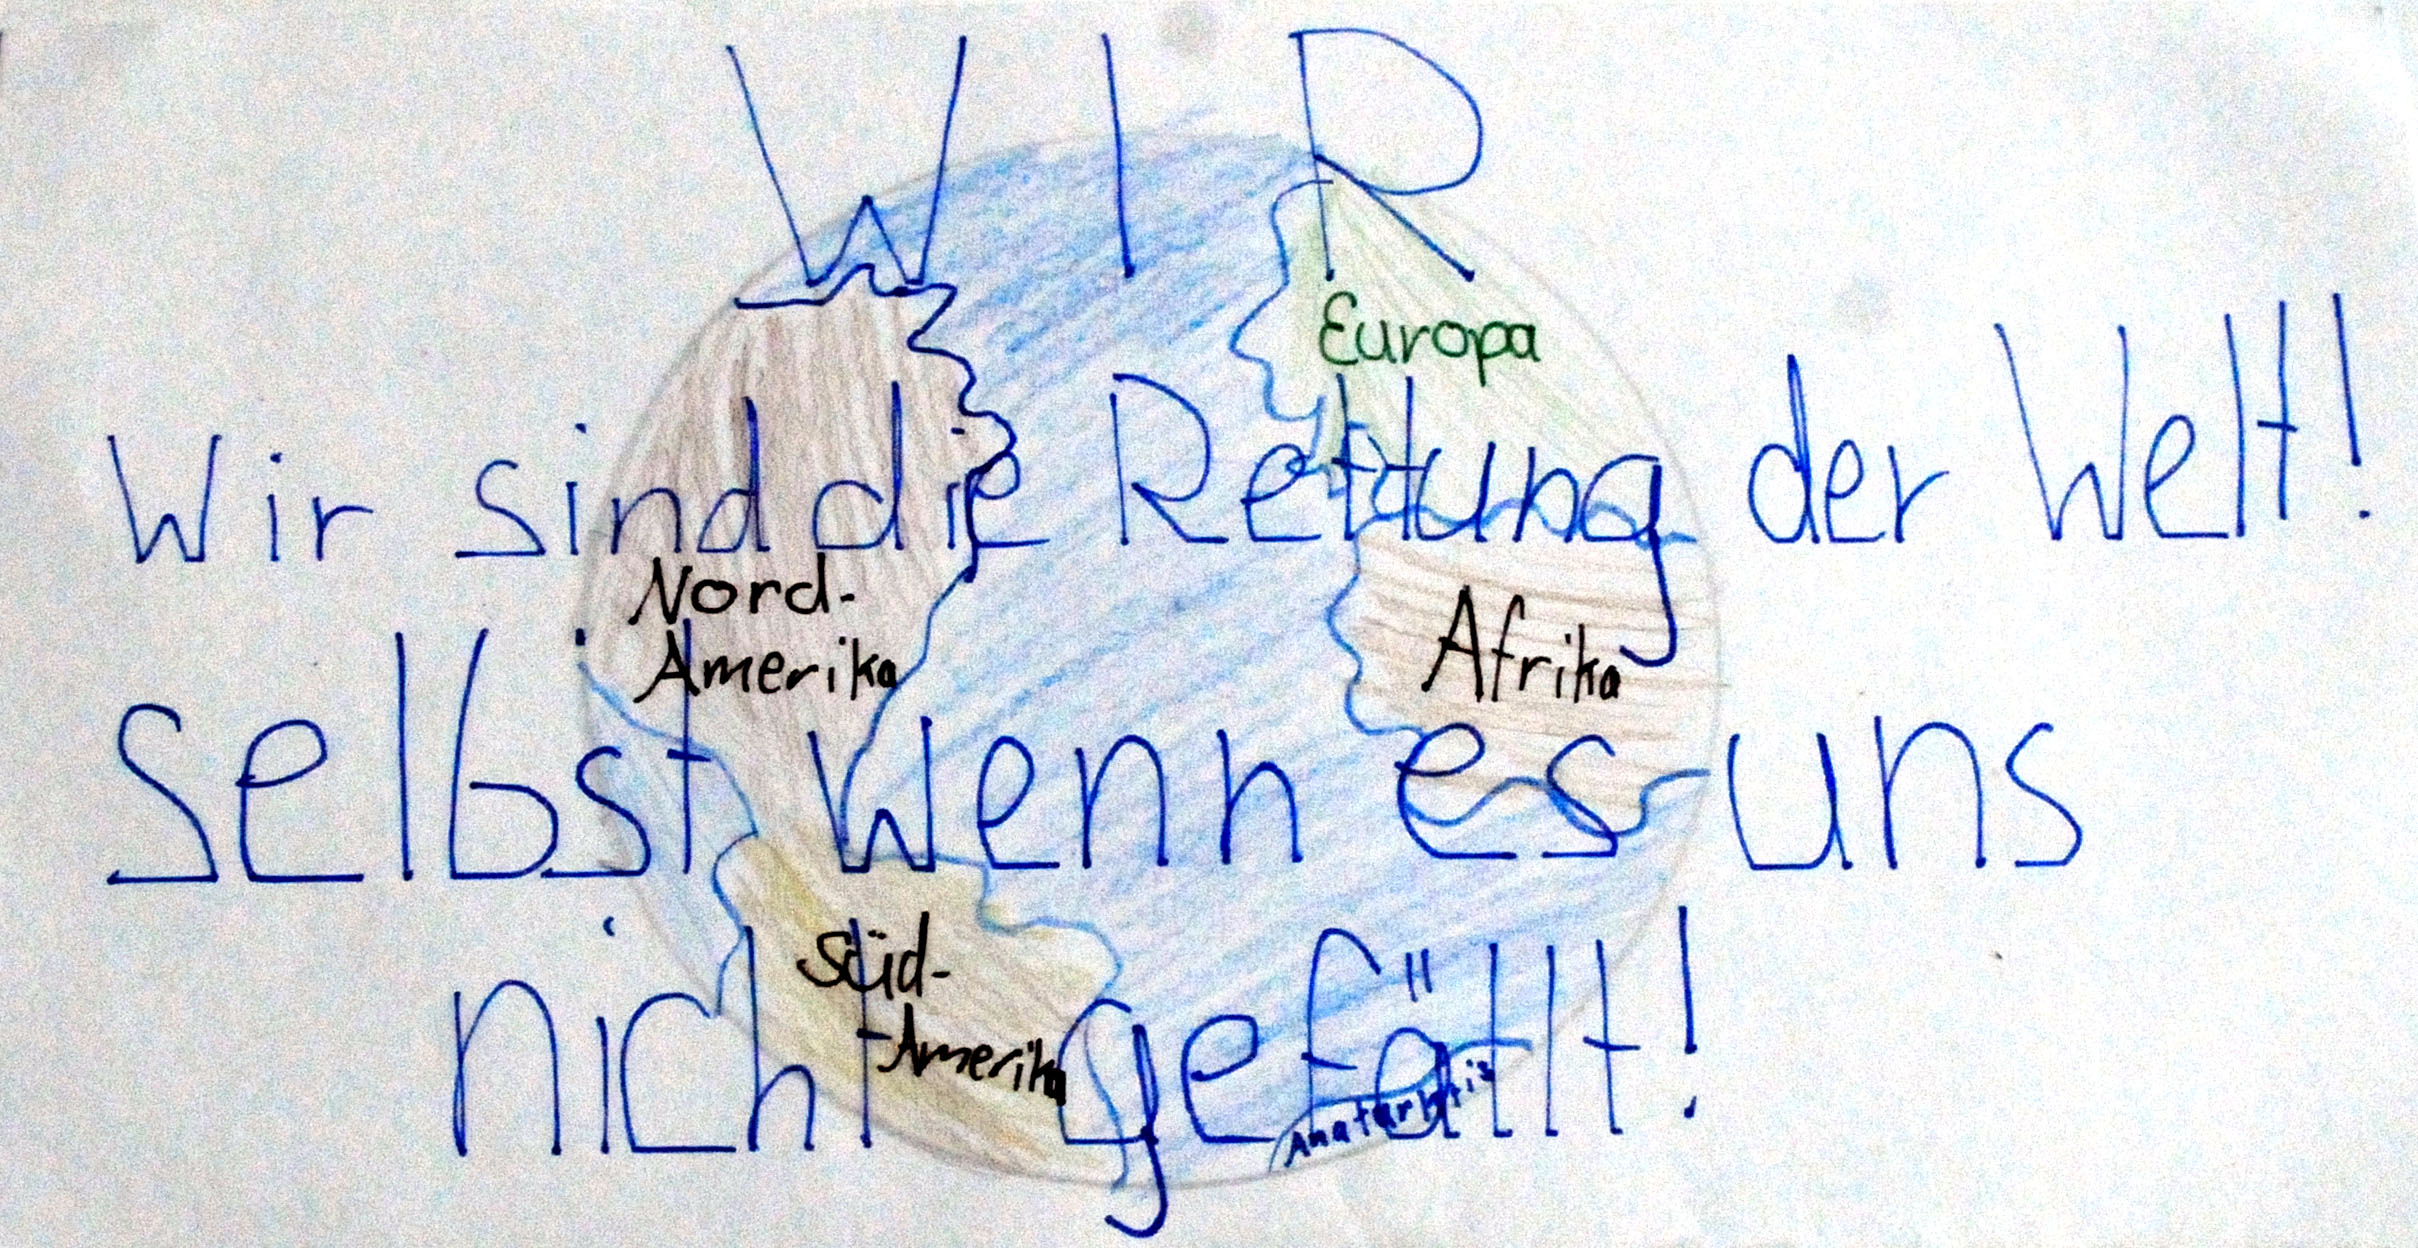 WIR
Europa
Wir sind die Rettung der Welt!
Nord-
Amerika
Afrika
selbst wenn es uns
Süd-
-Amerika
nicht gefällt!
Anatarktis